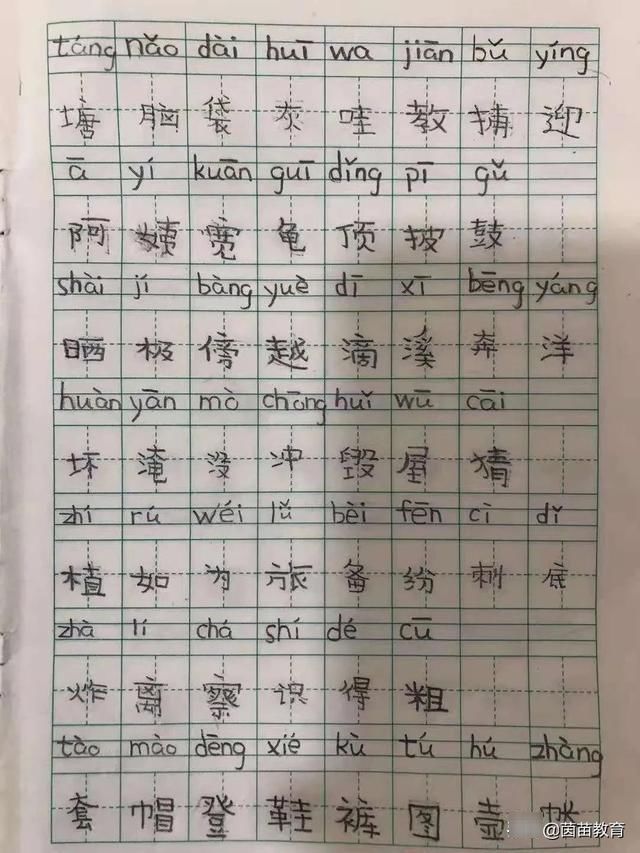 táng nǎo dài huī wa jiān bǔ yíng
塘 脑 袋 灰 哇 教 捕 迎
ā yí kuān guī dǐng pī gǔ
阿 姨 宽 龟 顶 披 鼓
shài jí bàng yuè dī xī bēng yáng
晒 极 傍 越 滴 溪 奔 洋
huàn yān mò chōng huǐ wū cāi
坏 淹 没 冲 毁 屋 猜
zhí rú wéi lǚ bèi fēn cì dǐ
植 如 为 旅 备 纷 刺 底
zhà lí chá shí dé cū
炸 离 察 识 得 粗
tào mào dēng xié kù tú hú zhàng
套 帽 登 鞋 裤 图 壶 帐
@茵苗教育